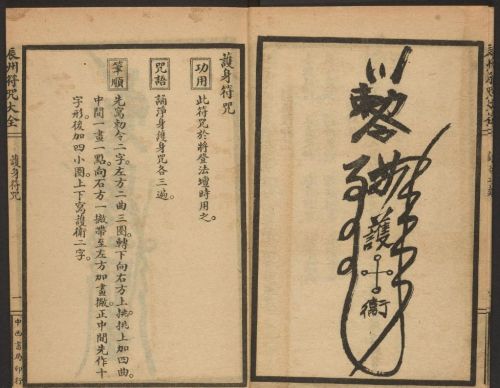 勅令
護
衛
護身符咒
功用 此符咒於將登法壇時用之。
咒語 誦淨身護身咒各三遍。
筆順 先寫勅令二字。左方二曲三圈。轉下向右方上挑。挑上加四曲。
中間一畫一點。向右方一撇帶至左方加畫撇。正中間先作十
字形。後加四小圈。上下寫護衛二字。
辰州符咒大全 護身符咒 一 中西書局印行